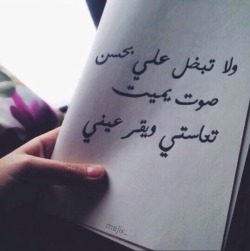 ولا تبخل علي بحسن
صوت يميت
تعاستي ويقر عيني
mejlx_